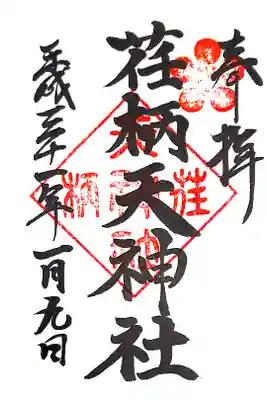 奉拝
荏柄天神社
平成三十一年一月九日
荏
柄